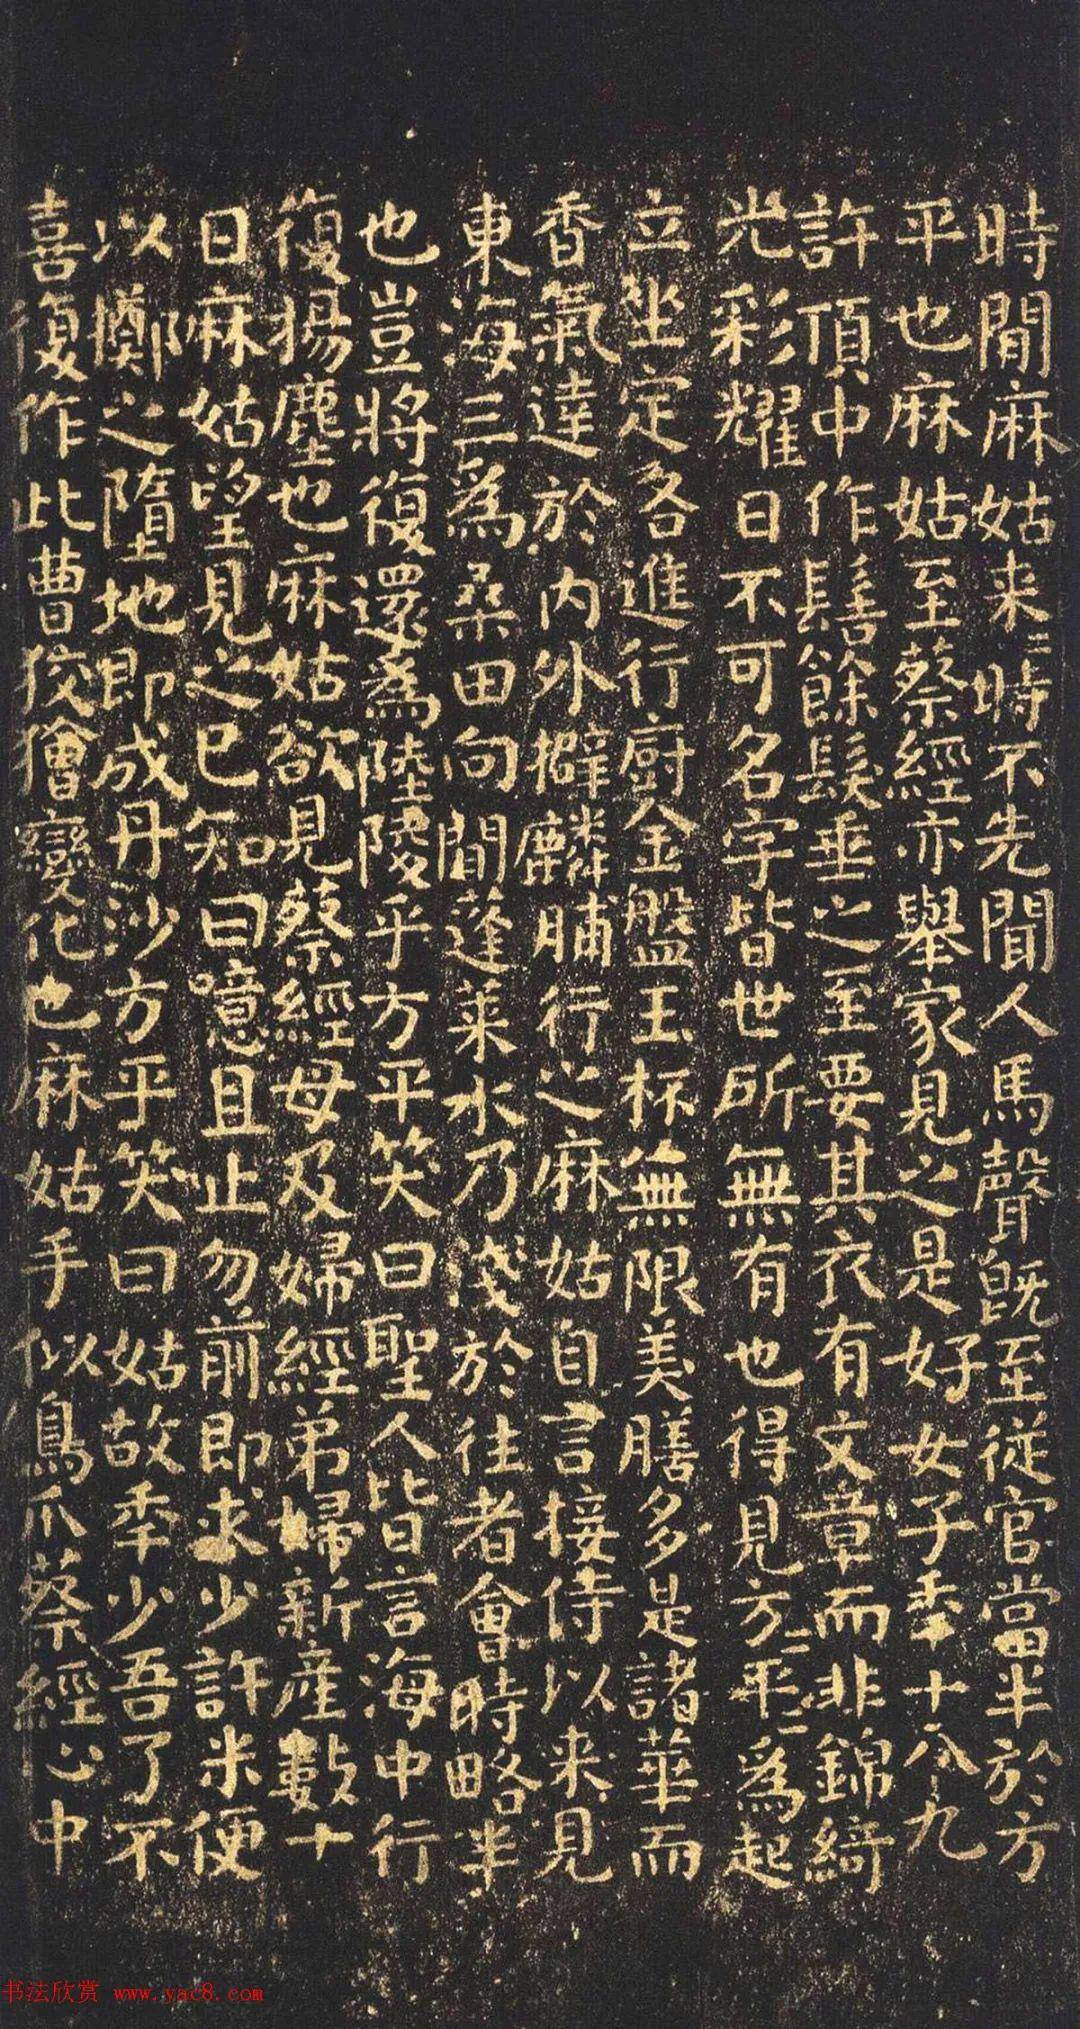 時間麻姑来=時不先聞人馬聲既至從官當半於方
平也麻姑至蔡經亦舉家見之是好女子秊十八九
許頂中作髻餘髮垂之至要其衣有文章而非錦綺
光彩耀日不可名字皆世所無有也得見方=平=爲起
立坐定各進行厨金盤玉杯無限美膳多是諸華而
香氣達於内外擗麟脯行之麻姑自言接侍以来見
東海三爲桑田向間蓬萊水乃淺於往者會時略半
也豈將復還爲陸陵乎方平笑曰聖人皆言海中行
復揚塵也麻姑欲見蔡經母及婦經弟婦新産數十
日麻姑望見之已知曰噫且止勿前即求少許米便
以擲之墮地即成丹沙方乎笑曰姑故秊少吾了不
喜復作此曹狡獪變化也麻姑手似鳥爪蔡經心中
书法欣赏 www.yac8.com